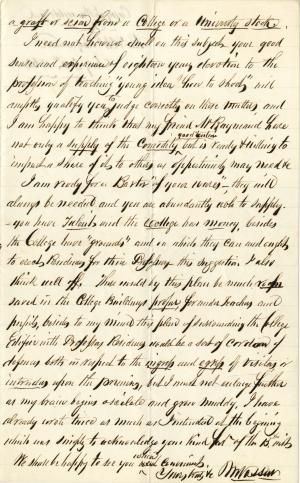 a graft or scion from a College or a University stock.
I need not however dwell on this subject your good
sense and experience of eighteen years devotion to the
profession of teaching "young idea how to shoot" will
amply qualify you judge correctly on these matters and
I am happy to think that my friend McRaynard have
good sentism
not only a supply of the comodity but is ready & willing to
impart a share of it to others as opportunity may need
I am ready for a Barter "of your wares" – they will
always be needed and you are abundantly able to supply –
you have Talent and the College has money, besides
the College have "grounds" and on which they can and ought
to erect Residences for their Professors this suggestion I also
think well of. There could by this plan be much room
saved in the College Buildings proper for under teachers and
pupils, besides to my mind this plan of surrounding the College
Edifice with Professors Residences would be a sort of Cordon of
defences both in respect to the ingress and egress of visitors or
intruders upon the premises, but I must not enlarge further
as my brain begins and grow muddy. I have
already wrote twice as much as I intended at the beginning
which was simply to acknowledge your kind of the 13th inst
We shall be happy to see you when convenient
Yours truly &c